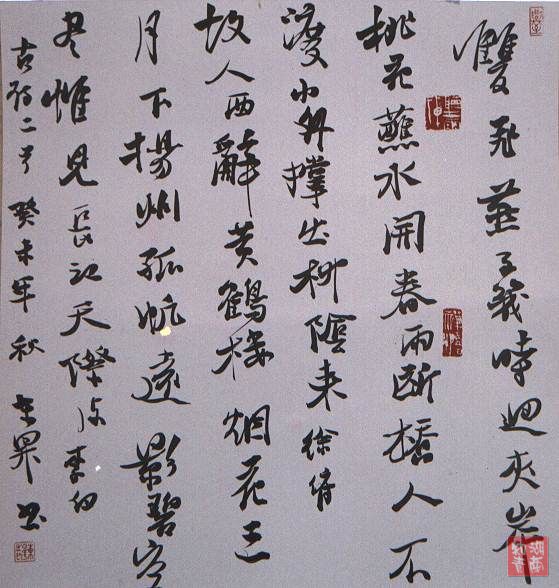 雙飛燕子幾時迴夾岸
桃花蘸水開春雨斷橋人不
渡小舟撐出柳陰來徐俯
故人西辭黃鶴樓烟花三
月下揚州孤帆遠影碧空
盡惟見長江天際流李白
古詩二首癸未年秋書
湖南